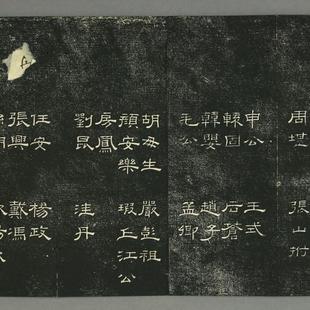 周堪 張山拊
申公 王式
轅固 后蒼
韓嬰 趙子
毛公 孟卿
胡毋生 嚴彭祖
顏安樂 瑕丘江公
房鳳
劉昆 洼丹
任安 楊政
張興 戴馮